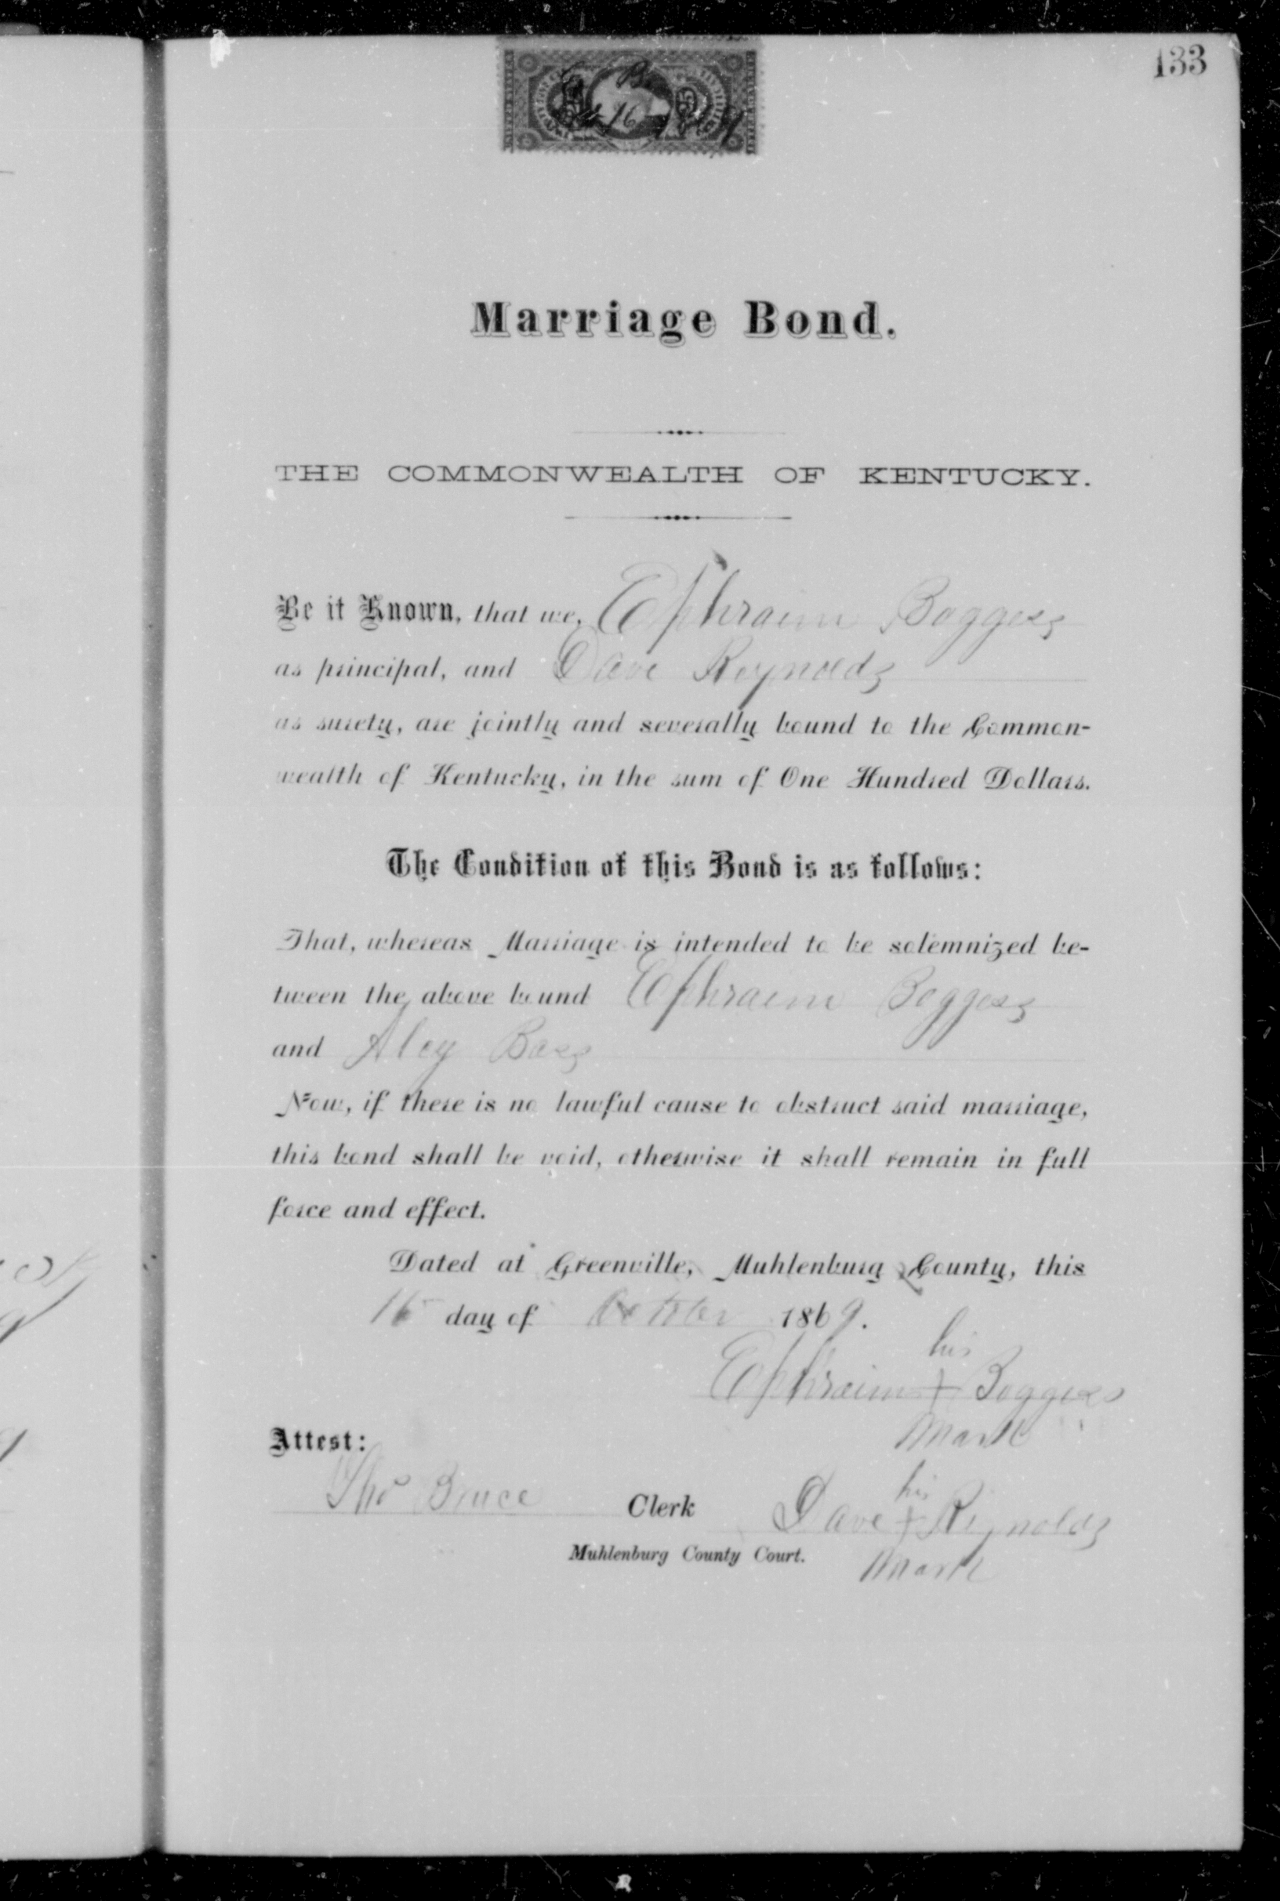 133
Oct 16 1869
Marriage Bond.
THE COMMONWEALTH OF KENTUCKY.
Be it Known, that we, Ephraim Boggess
as principal, and Dave Reynolds
as surety, are jointly and severally bound to the Common-
wealth of Kentucky, in the sum of One Hundred Dollars.
The Condition of this Bond is as follows:
That, whereas Marriage is intended to be solemnized be-
tween the above bound Ephraim Boggess
and Alcy Bass
Now, if there is no lawful cause to obstruct said marriage,
this bond shall be void, otherwise it shall remain in full
force and effect.
Dated at Greenville, Muhlenburg County, this
16 day of October 1869.
his
Ephraim + Boggess
mark
Attest:
Tho Bruce Clerk
Muhlenburg County Court.
his
Dave + Reynolds
mark